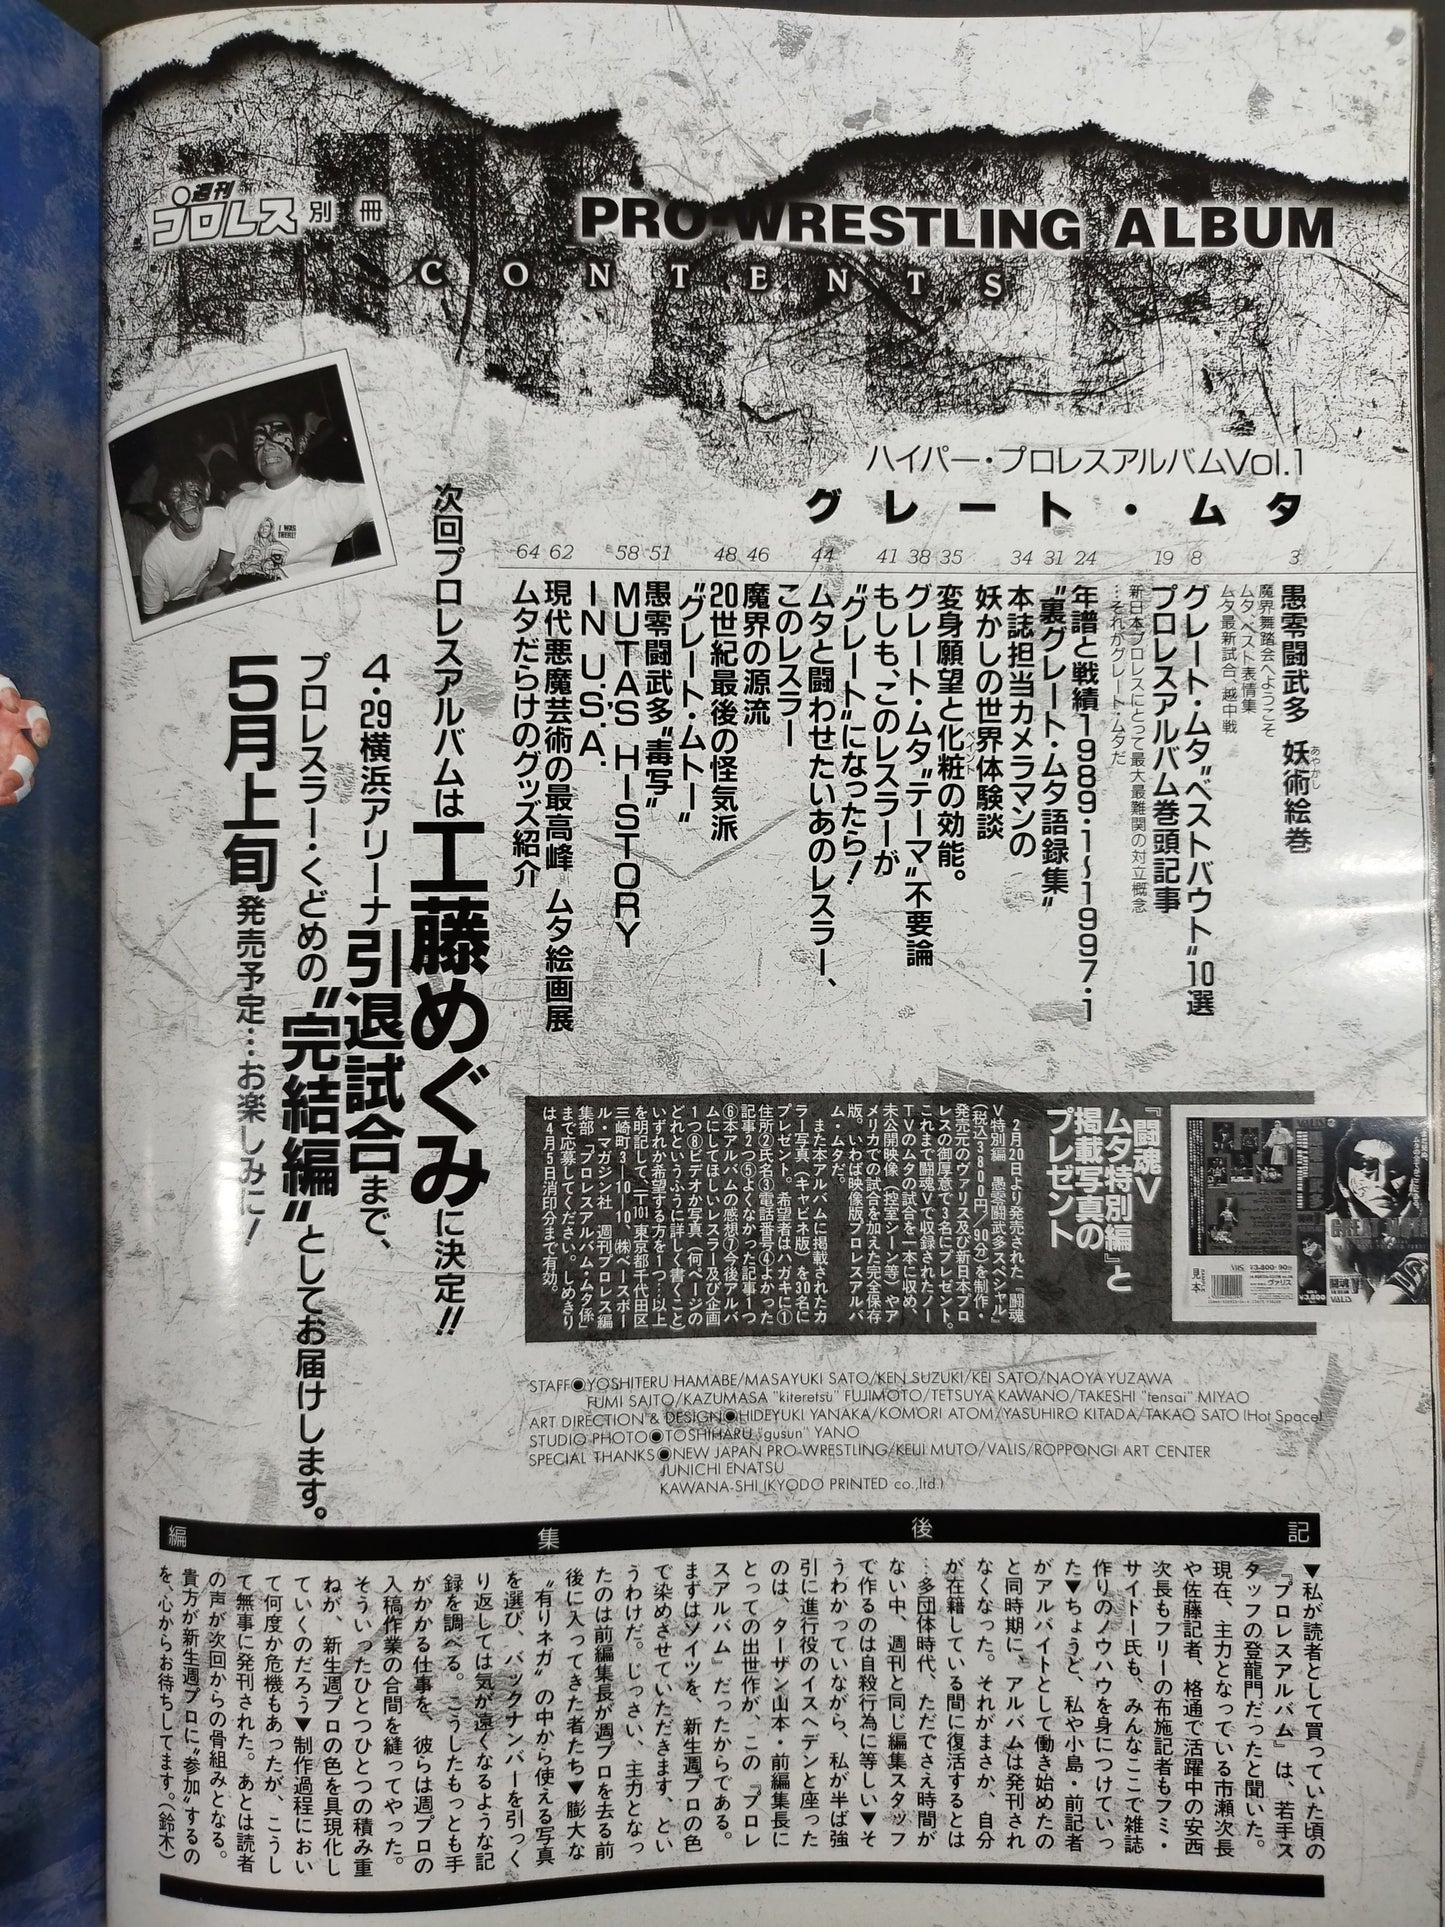 週刊
プロレス別冊
PRO-WRESTLING ALBUM
CONTENTS
ハイパー・プロレスアルバムVol.1
グレート・ムタ
3
愚零闘武多 妖術絵巻
あやかし
魔界舞踏会へようこそ
ムタ、ベスト表情集
ムタ最新試合、越中戦
8
グレート・ムタ“ベストバウト”10選
19
プロレスアルバム巻頭記事
新日本プロレスにとって最大最難関の対立概念
…それがグレート・ムタだ
24
年譜と戦績1989・1〜1997・1
31
“裏グレート・ムタ語録集”
34
本誌担当カメラマンの
妖かしの世界体験談
35
変身願望と化粧の効能。
ペイント
38
グレート・ムタ“テーマ”不要論
41
もしも、このレスラーが
“グレート”になったら！
44
ムタと闘わせたいあのレスラー、
このレスラー
46
魔界の源流
48
20世紀最後の怪気派
“グレート・ムトー”
51
愚零闘武多“毒写”
58
MUTA'S HISTORY
IN U.S.A.
62
現代悪魔芸術の最高峰 ムタ絵画展
64
ムタだらけのグッズ紹介
I WAS
THERE!
次回プロレスアルバムは工藤めぐみに決定!!
4・29横浜アリーナ引退試合まで、
プロレスラー・くどめの“完結編”としてお届けします。
5月上旬発売予定…お楽しみに！
『闘魂V
ムタ特別編』と
掲載写真の
プレゼント
2月20日より発売された『闘魂
V特別編 愚零闘武多スペシャル』
（税込3800円／90分）を制作・
発売元のヴァリス及び新日本プロ
レスの御厚意で3名にプレゼント。
これまで闘魂Vで収録されたノー
TVのムタの試合を一本に収め、
未公開映像（控室シーン等）やア
メリカでの試合を加えた完全保存
版。いわば映像版プロレスアルバ
ム・ムタだ。
また本アルバムに掲載されたカ
ラー写真（キャビネ版）を30名に
プレゼント。希望者はハガキに①
住所②氏名③電話番号④よかった
記事2つ⑤よくなかった記事1つ
⑥本アルバムの感想⑦今後アルバ
ムにしてほしいレスラー及び企画
1つ⑧ビデオか写真（何ページの
どれというふうに詳しく書くこと）
いずれか希望する方を1つ…以上
を明記して、〒101 東京都千代田区
三崎町3-10-10 ㈱ベースボー
ル・マガジン社 週刊プロレス編
集部「プロレスアルバム・ムタ係」
まで応募してください。しめきり
は4月5日消印分まで有効。
VALIS
¥3,800・90分
ヴァリス
見本
GREAT MUTA
STAFF◉YOSHITERU HAMABE/MASAYUKI SATO/KEN SUZUKI/KEI SATO/NAOYA YUZAWA
FUMI SAITO/KAZUMASA "kiteretsu" FUJIMOTO/TETSUYA KAWANO/TAKESHI "tensai" MIYAO
ART DIRECTION & DESIGN◉HIDEYUKI YANAKA/KOMORI ATOM/YASUHIRO KITADA/TAKAO SATO (Hot Space)
STUDIO PHOTO◉TOSHIHARU "gusun" YANO
SPECIAL THANKS◉NEW JAPAN PRO-WRESTLING/KEIJI MUTO/VALIS/ROPPONGI ART CENTER
JUNICHI ENATSU
KAWANA-SHI (KYODO PRINTED co.,ltd.)
編集後記
▼私が読者として買っていた頃の
『プロレスアルバム』は、若手ス
タッフの登龍門だったと聞いた。
現在、主力となっている市瀬次長
や佐藤記者、格通で活躍中の安西
次長もフリーの布施記者もフミ・
サイトー氏も、みんなここで雑誌
作りのノウハウを身につけていっ
た▼ちょうど、私や小島・前記者
がアルバイトとして働き始めたの
と同時期に、アルバムは発刊され
なくなった。それがまさか、自分
が在籍している間に復活するとは
…多団体時代、ただでさえ時間が
ない中、週刊と同じ編集スタッフ
で作るのは自殺行為に等しい▼そ
うわかっていながら、私が半ば強
引に進行役のイスへデンと座った
のは、ターザン山本・前編集長に
とっての出世作が、この『プロレ
スアルバム』だったからである。
まずはソイツを、新生週プロの色
で染めさせていただきます、とい
うわけだ。じっさい、主力となっ
たのは前編集長が週プロを去る前
後に入ってきた者たち▼膨大な
“有りネガ”の中から使える写真
を選び、バックナンバーを引っく
り返しては気が遠くなるような記
録を調べる。こうしたもっとも手
がかかる仕事を、彼らは週プロの
入稿作業の合間を縫ってやった。
そういったひとつひとつの積み重
ねが、新生週プロの色を具現化し
ていくのだろう▼制作過程におい
て何度か危機もあったが、こうし
て無事に発刊された。あとは読者
の声が次回からの骨組みとなる。
貴方が新生週プロに“参加”するの
を、心からお待ちしてます。（鈴木）